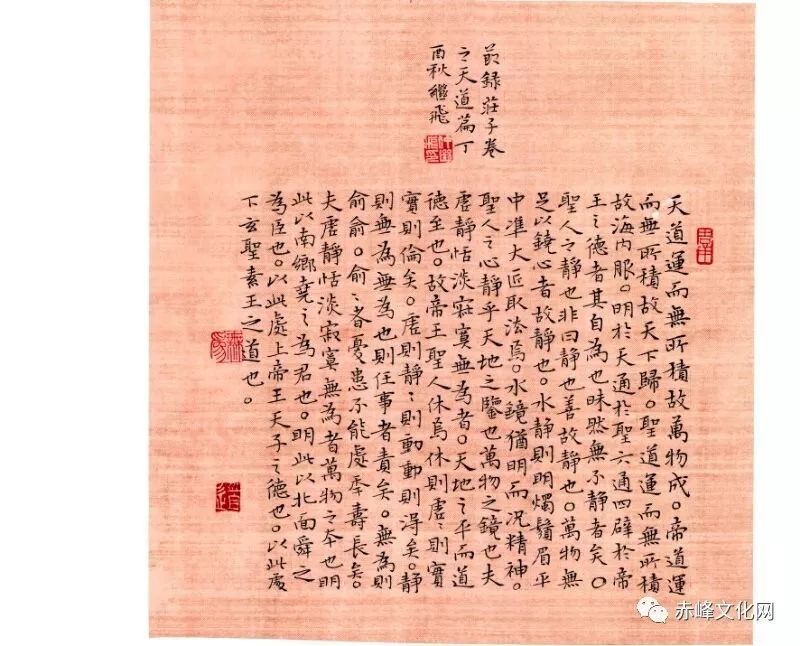 節録莊子卷
之天道篇丁
酉秋繼飛
天道運而無所積故萬物成。帝道運
而無所積故天下歸。聖道運而無所積
故海内服。明於天通於聖六通四辟於帝
王之德者其自為也昧然無不靜者矣。
聖人之靜也非曰靜也善故靜也。萬物無
足以鐃心者故靜也。水靜則明燭鬚眉平
中準大匠取法焉。水鏡猶明而況精神。
聖人之心靜乎天地之鑒也萬物之鏡也夫
虛靜恬淡寂寞無為者。天地之平而道
德至也。故帝王聖人休焉休則虛:則實
實則倫矣。虛則靜:則動動則得矣。靜
則無為無為也則任事者責矣。無為則
俞俞。俞:者憂患不能處年壽長矣。
夫虛靜恬淡寂寞無為者萬物之本也明
此以南鄉堯之為君也。明此以北面舜之
為臣也。以此處上帝王天子之德也。以此處
下玄聖素王之道也。
赤峰文化网